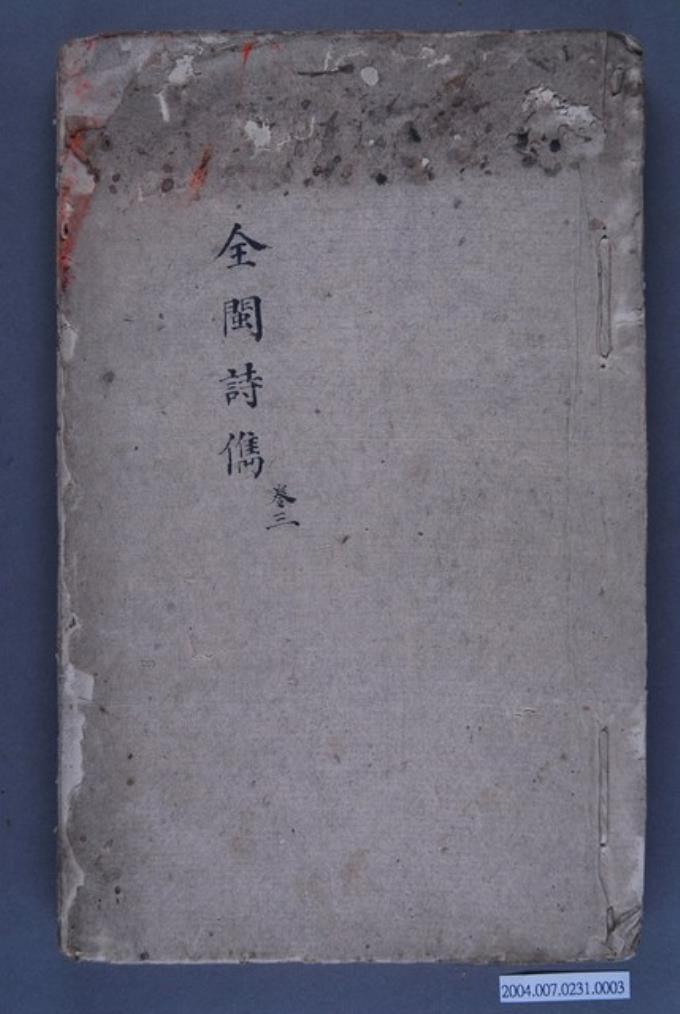 全閩詩儁
卷三
2004.007.0231.0003